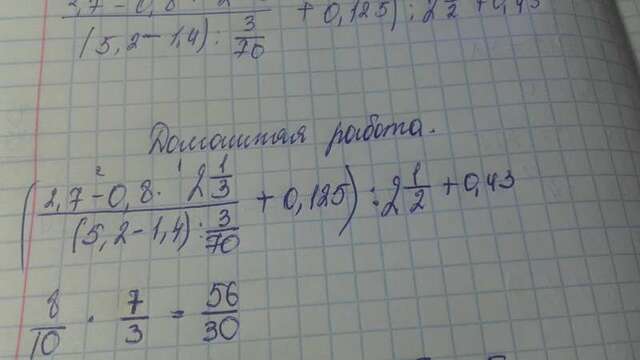 2,7 - 0,8 · 2
(5,2 - 1,4) : 3/70 + 0,125) : 2 1/2 + 0,43
Домашняя работа.
((2,7 - 0,8 · 2 1/3)/((5,2 - 1,4) : 3/70) + 0,125) : 2 1/2 + 0,43
8/10 · 7/3 = 56/30